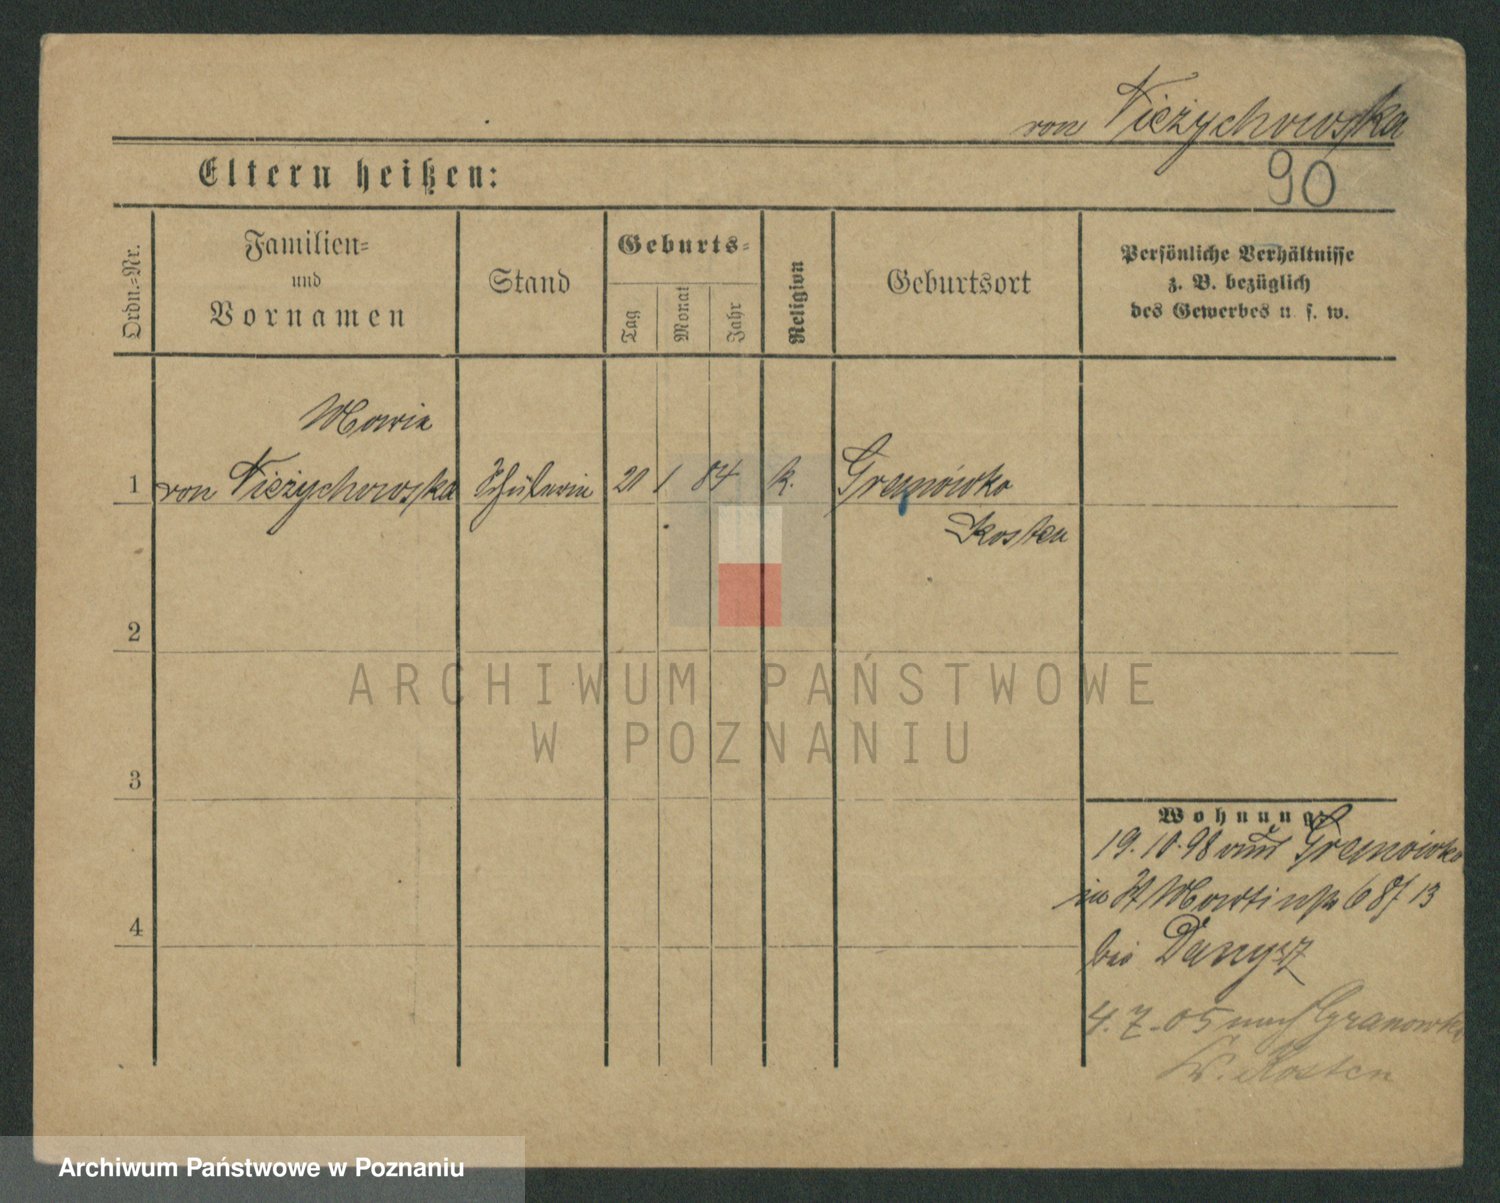 von Nieżychowska
90
Eltern heißen:
Ordn.-Nr.
Familien-
und
Vornamen
Stand
Geburts-
Tag
Monat
Jahr
Religion
Geburtsort
Persönliche Verhältnisse
z. B. bezüglich
des Gewerbes u. s. w.
Marie
1 von Nieżychowska Schülerin 20 1 84 k. Granówko
Kosten
2
3
4
Wohnung.
19.10.98 aus Granówko
in St Martinstr 68/ 13
bei Danysz
4.7.05 nach Granowko
Kr. Kosten
ARCHIWUM PAŃSTWOWE
W POZNANIU
Archiwum Państwowe w Poznaniu